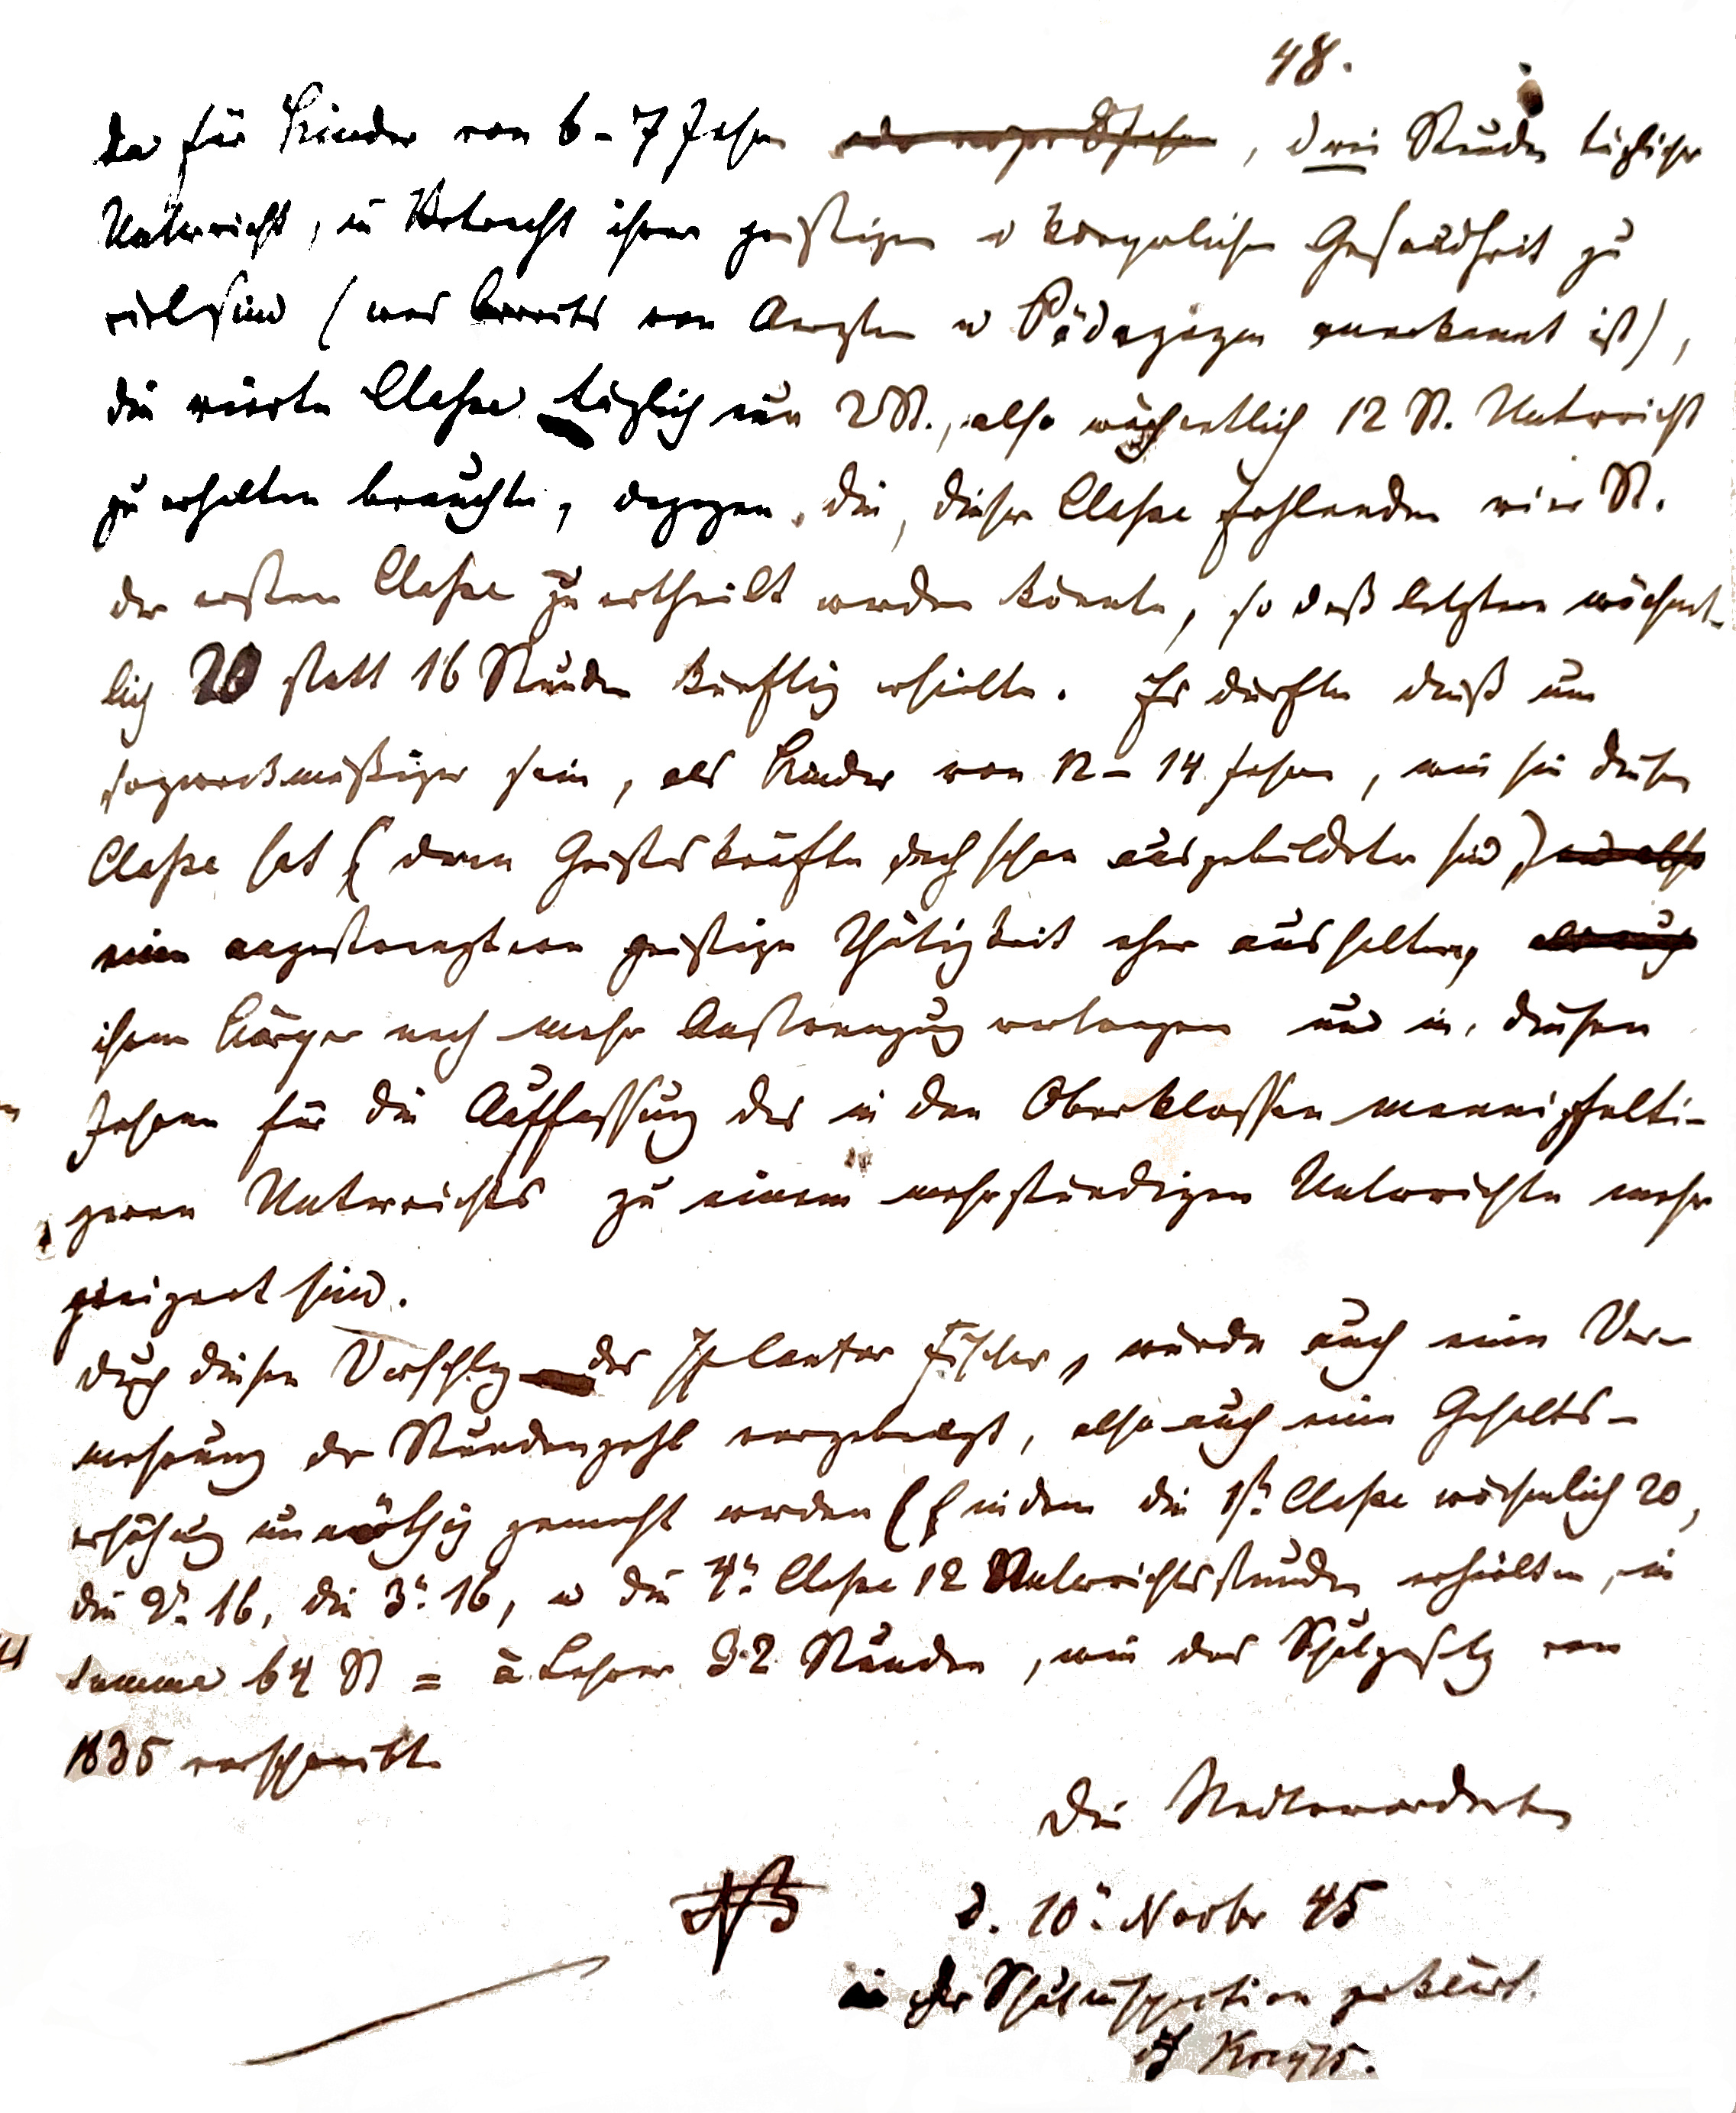 48.
da für Kinder von 6-7 Jahren oder nahe 8 Jahren, drei Stunden täglicher
Unterricht, in Betracht ihrer geistigen u körperlichen Gesundheit zu
viel sind (was bereits von Aerzten u Pädagogen anerkannt ist),
die vierte Classe täglich nur 2 St., also wöchentlich 12 St. Unterricht
zu erhalten brauchte, dagegen, die, dieser Classe fehlenden vier St.
der ersten Classe zuertheilt werden könnte, so daß letztere wöchent-
lich 20 statt 16 Stunden künftig erhielte. Es dürfte dieß um
sozweckmäßiger sein, als Kinder von 12-14 Jahren, wie sie diese
Classe hat (deren Geisteskräfte doch schon ausgebildeter sind) und also
eine angestrengtere geistige Thätigkeit eher aushalten, als auch
ihrem Körper nach mehr Anstrengung vertragen und in diesen
Jahren für die Auffassung des in den Oberklassen mannigfalti-
geren Unterrichts zu einem mehrstündigen Unterrichte mehr
geeignet sind.
Durch diesen Vorschlag des H Cantor Fischer, würde auch eine Ver-
mehrung der Stundenzahl vorgebeugt, also auch eine Gehalts-
erhöhung unnöthig gemacht werden (indem die 1st. Classe wöchentlich 20,
die 2n. 16, die 3n. 16, u die 4n. Classe 12 Unterrichtsstunden erhielten, in
Summa 64 St = à Lehrer 32 Stunden, wie das Schulgesetz von
1835 vorschreibt
Die Stadtverordneten
d. 10n. Novbr 45
in der Schulinspection